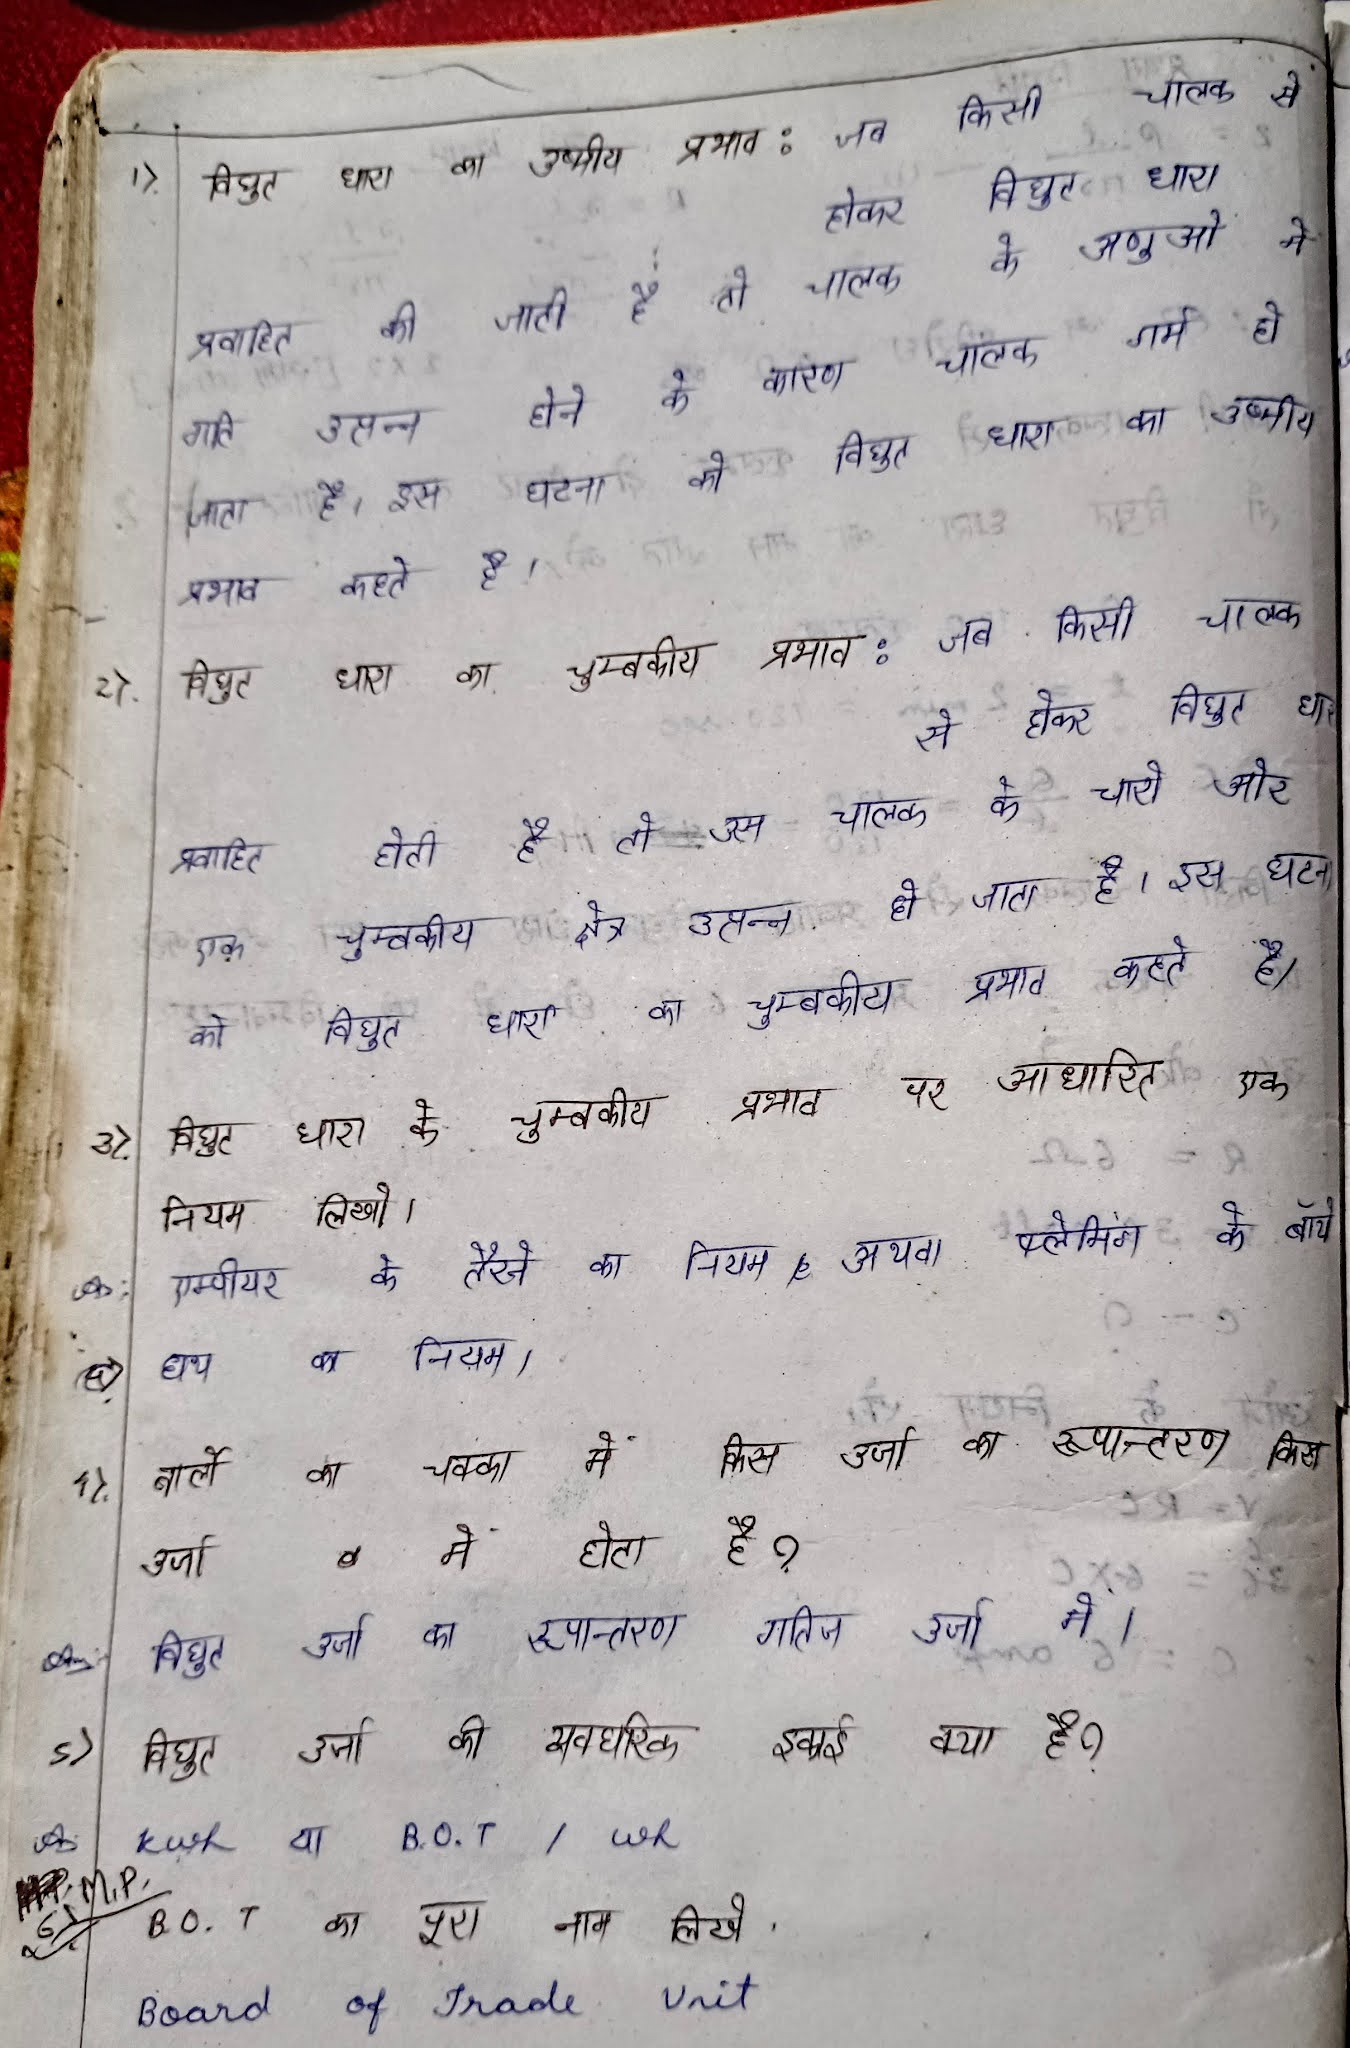 1). विघुत धारा का उष्मीय प्रभाव : जब किसी चालक से
होकर विघुत धारा
प्रवाहित की जाती है तो चालक के अणुओ में
गति उत्पन्न होने के कारण चालक गर्म हो
जाता है। इस घटना को विघुत धारा का उष्मीय
प्रभाव कहते है।
2). विघुत धारा का चुम्बकीय प्रभाव : जब किसी चालक
से होकर विघुत धारा
प्रवाहित होती है तो उस चालक के चारो ओर
एक चुम्बकीय क्षेत्र उत्पन्न हो जाता है। इस घटना
को विघुत धारा का चुम्बकीय प्रभाव कहते है।
3). विघुत धारा के चुम्बकीय प्रभाव पर आधारित एक
नियम लिखो।
एम्पीयर के तैरने का नियम अथवा फ्लेमिंग के बॉये
हाथ का नियम।
4). बार्लो का चक्का में किस उर्जा का रूपान्तरण किस
उर्जा में होता है?
Ans:- विघुत उर्जा का रूपान्तरण गतिज उर्जा में।
5) विघुत उर्जा की व्यवघरिक इकाई क्या है?
kwh या B.O.T / wh
M.P.
6). B.O.T का पूरा नाम लिखे.
Board of Trade Unit